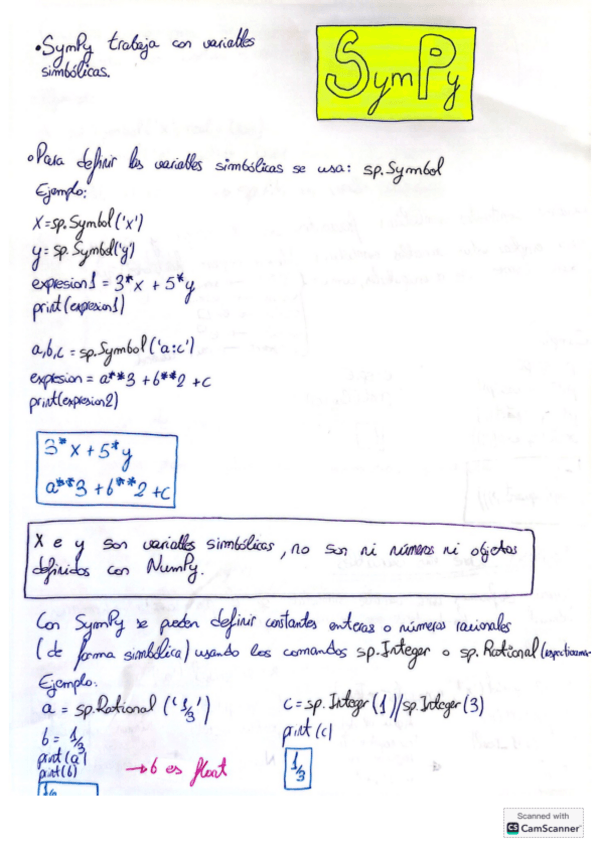 • SymPy trabaja con variables
simbólicas.
SymPy
• Para definir las variables simbólicas se usa: sp.Symbol
Ejemplo:
x=sp.Symbol('x')
y=sp.Symbol('y')
expresion1 = 3*x + 5*y
print(expresion1)
a,b,c = sp.Symbol('a:c')
expresion = a**3 + b**2 + c
print(expresion2)
3*x+5*y
a**3+b**2+c
X e y son variables simbólicas, no son ni números ni objetos
definidos con NumPy.
Con SymPy se pueden definir constantes enteras o números racionales
(de forma simbólica) usando los comandos sp.Integer o sp.Rational (respectivamen-
Ejemplo:
a = sp.Rational('1/3')
b = 1/3
print(a)
print(b)
→ b es float
c=sp.Integer(1)/sp.Integer(3)
print(c)
1/3
Scanned with
CS CamScanner